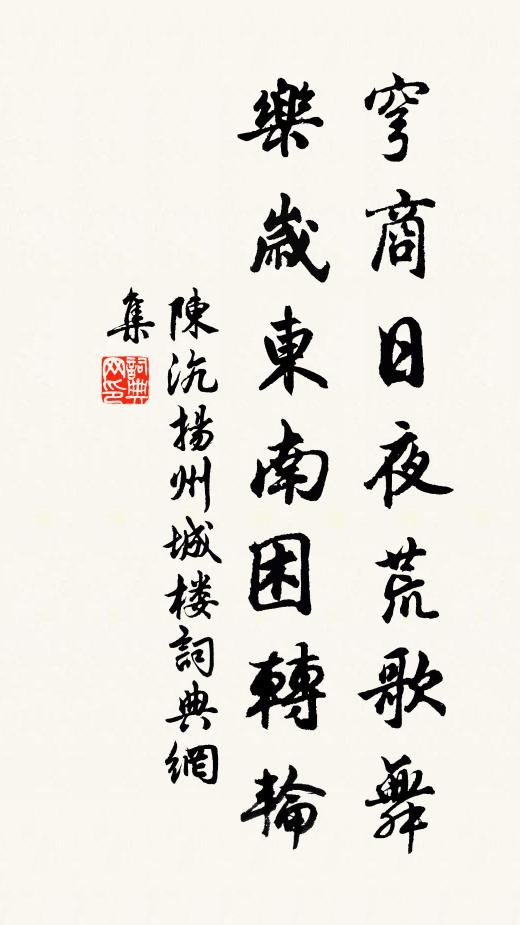 穹商日夜荒歌舞
樂歲東南困轉輪
陳沆揚州城楼詞典網
集
詞典網印